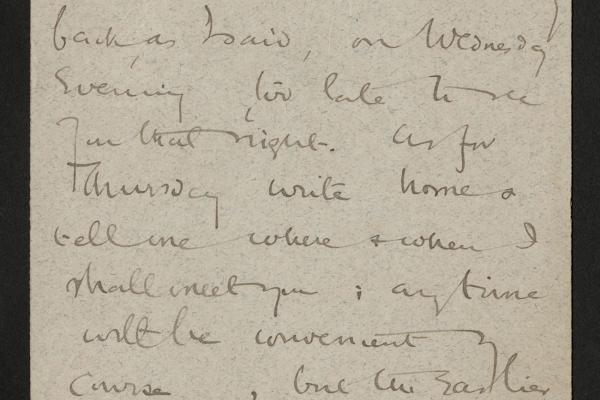 back, as I said, on Wednesday
Evening, too late to see
you that night. As for
Thursday write home &
tell me where & when I
shall meet you ; any time
will be convenient of
course, but the Earlier